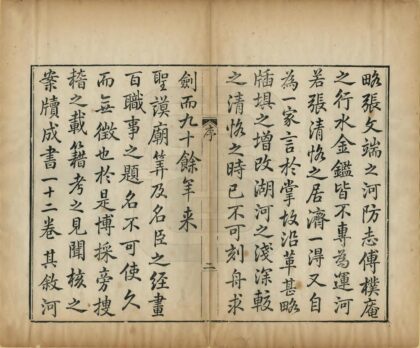 略張文端之河防志傅樸庵
之行水金鑑皆不專為運河
若張清恪之居濟一得又自
為一家言於掌故沿革甚略
牐垻之增改湖河之淺深較
之清恪之時已不可刻舟求
序
二
劍而九十餘年來
聖謨廟筭及名臣之經畫
百職事之題名不可使久
而無徵也於是博採旁搜
稽之載籍考之見聞核之
案牘成書一十二卷其敘河